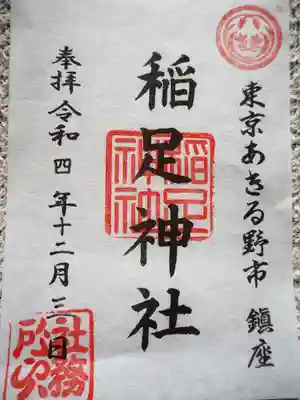 東京あきる野市 鎮座
稲足神社
奉拝令和四年十二月三日
稲足神社
社務所